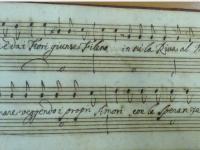 Fiori giunse Filena in sù la Riva al M
mare veggendo i propri Amori con la Speranza